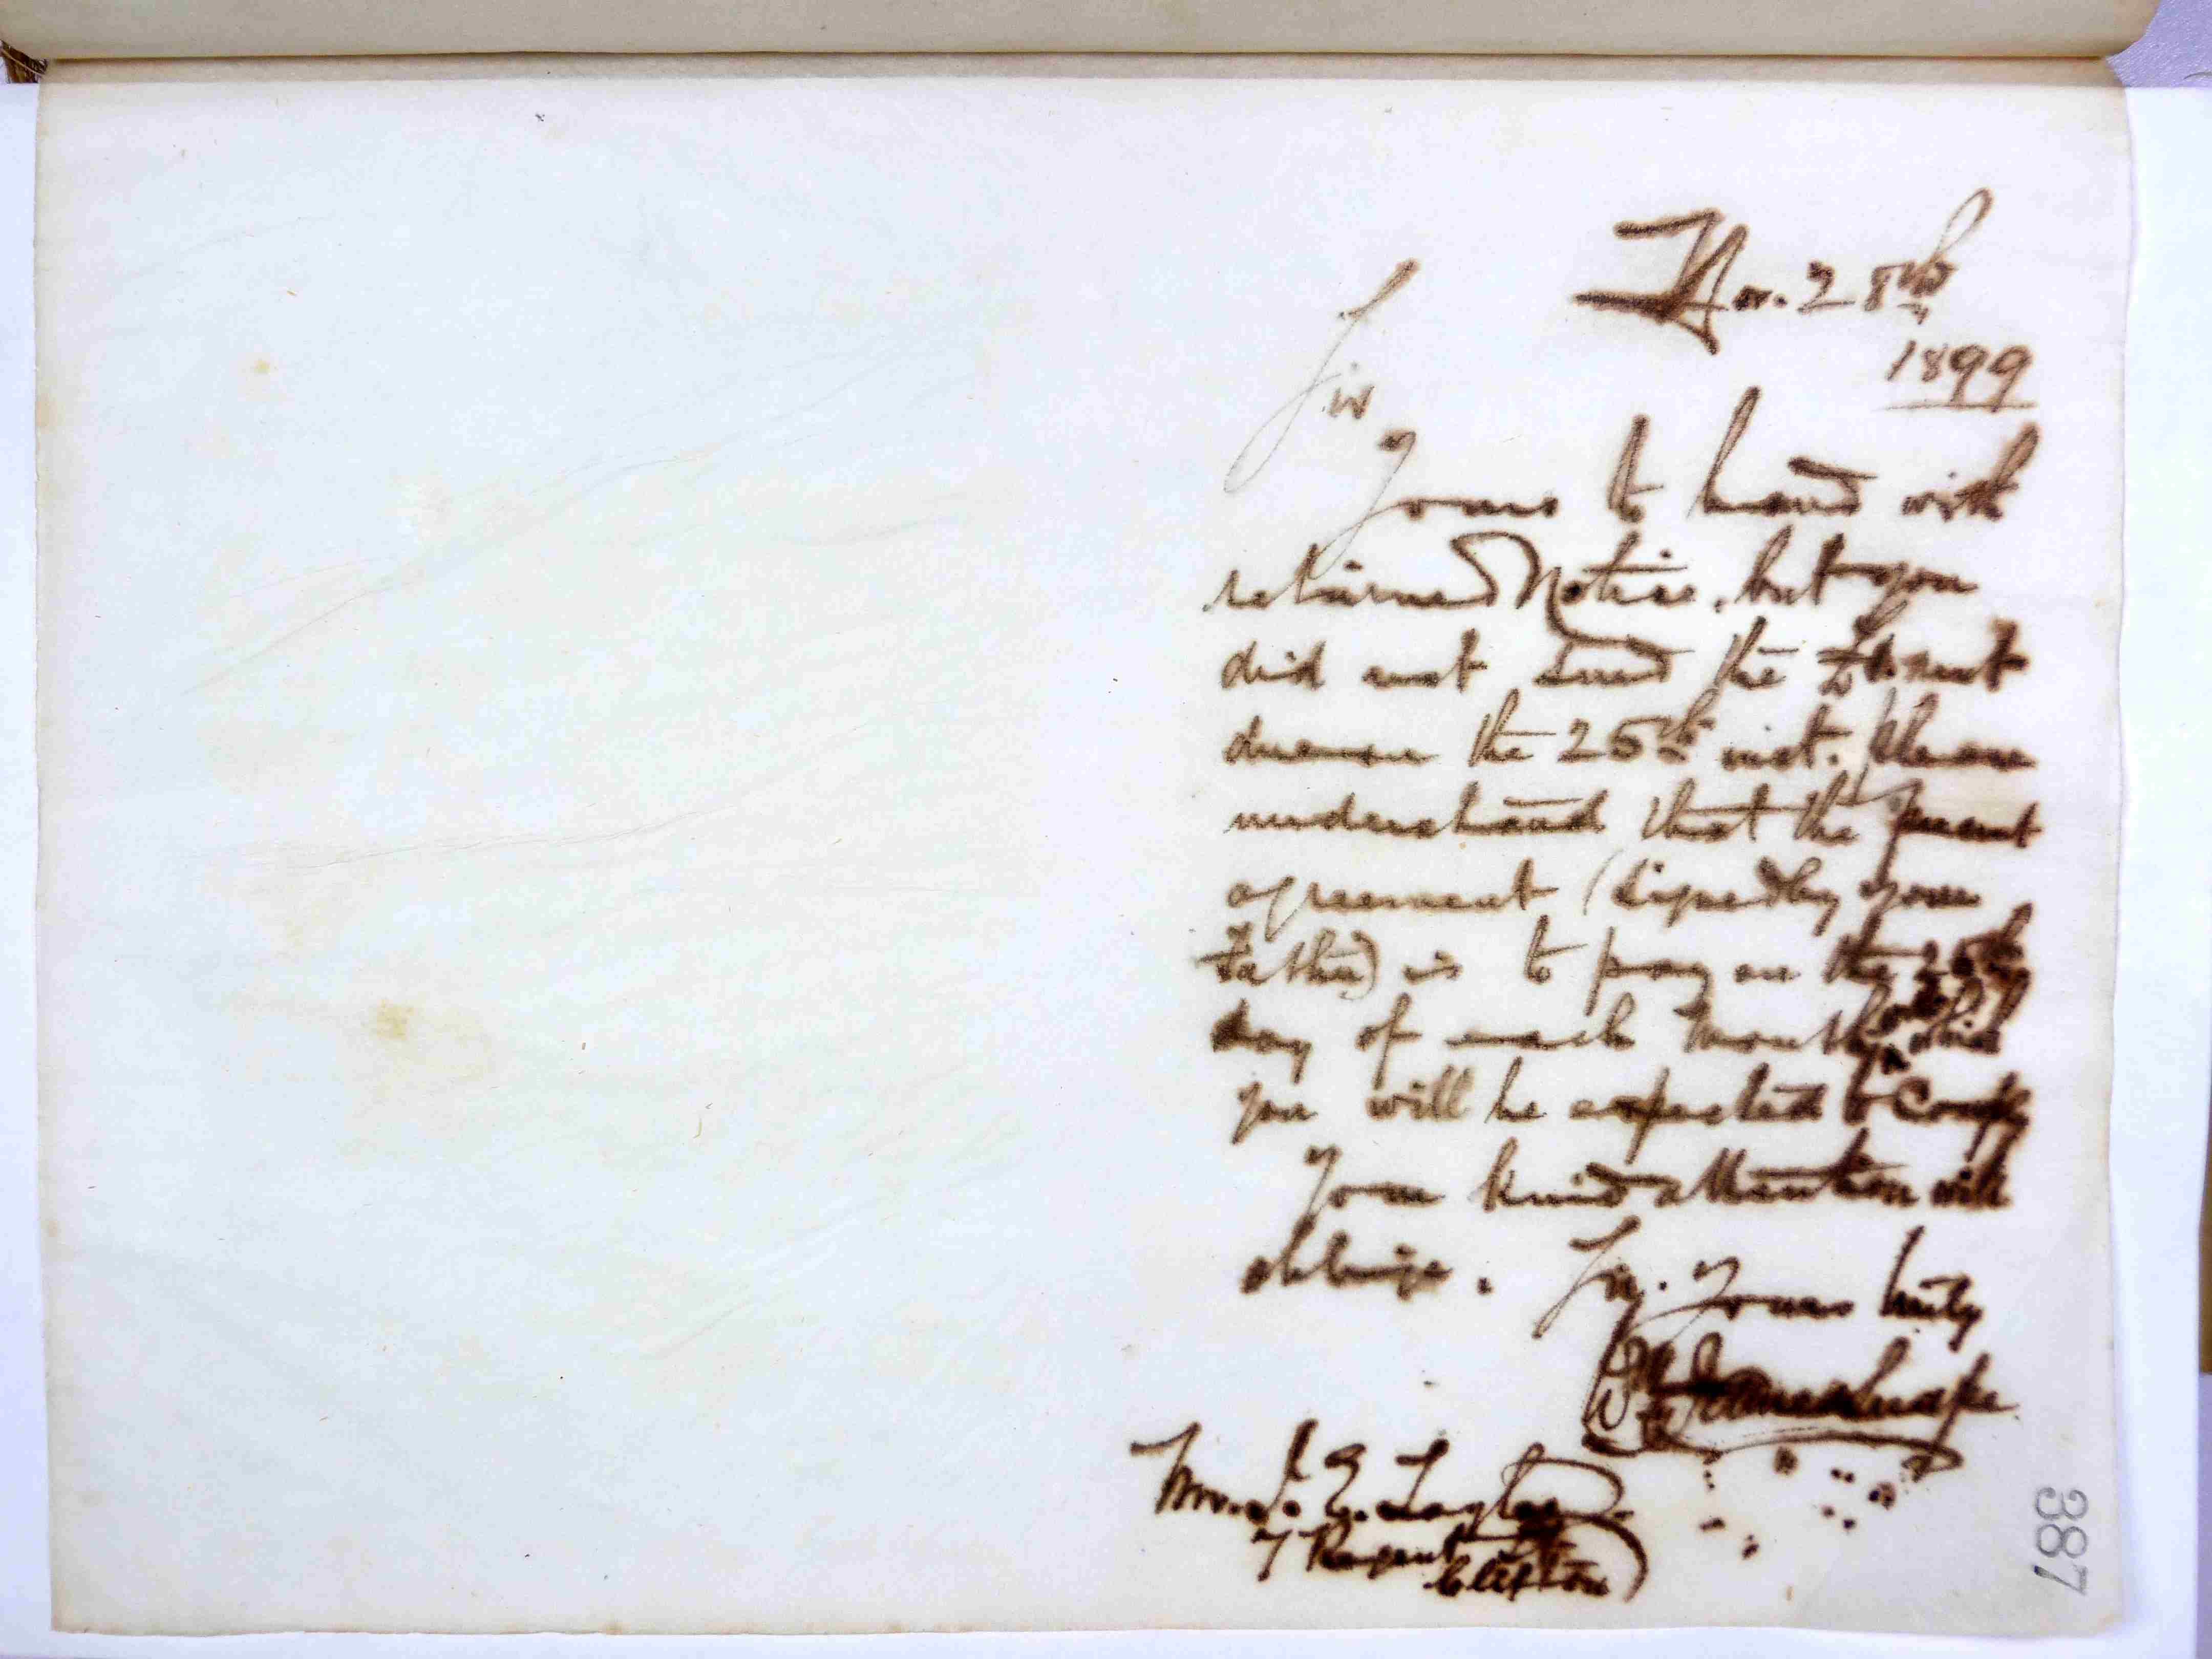 Nov. 28th
1899
Sir
Yours to hand with
returned Notice, but you
did not send the rent
due on the 25th inst. Please
understand that the present
agreement (signed by your
Father) is to pay on the 25th
day of each month with which
you will be expected to comply
Your kind attention will
oblige. Sir. Yours truly
Mr. J. E. Taylor
7 Regent St
Clifton
387